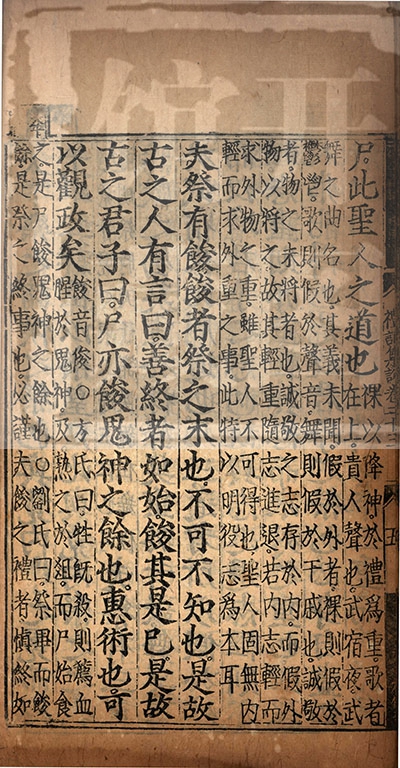 尸此聖人之道也祼以降神於禮爲重歌者
在上貴人聲也武宿夜武
舞之曲名也其義未聞假於外者祼則假於
鬱鬯歌則假於聲音舞則假於干戚也誠敬
者物之未將者也誠敬之志存於內而假外
物以將之故其輕重隨志進退若內志輕而
求外物之重雖聖人不可得也聖人固無內
輕而求外重之事此特以明役志爲本耳
夫祭有餕餕者祭之末也不可不知也是故
古之人有言曰善終者如始餕其是已是故
古之君子曰尸亦餕鬼神之餘也惠術也可
以觀政矣餕音俊○方氏曰牲旣殺則薦血
腥於鬼神及熟之於俎而尸始食
之是尸餕鬼神之餘也○劉氏曰祭畢而餕
餘是祭之終事也必謹夫餕之禮者愼終如